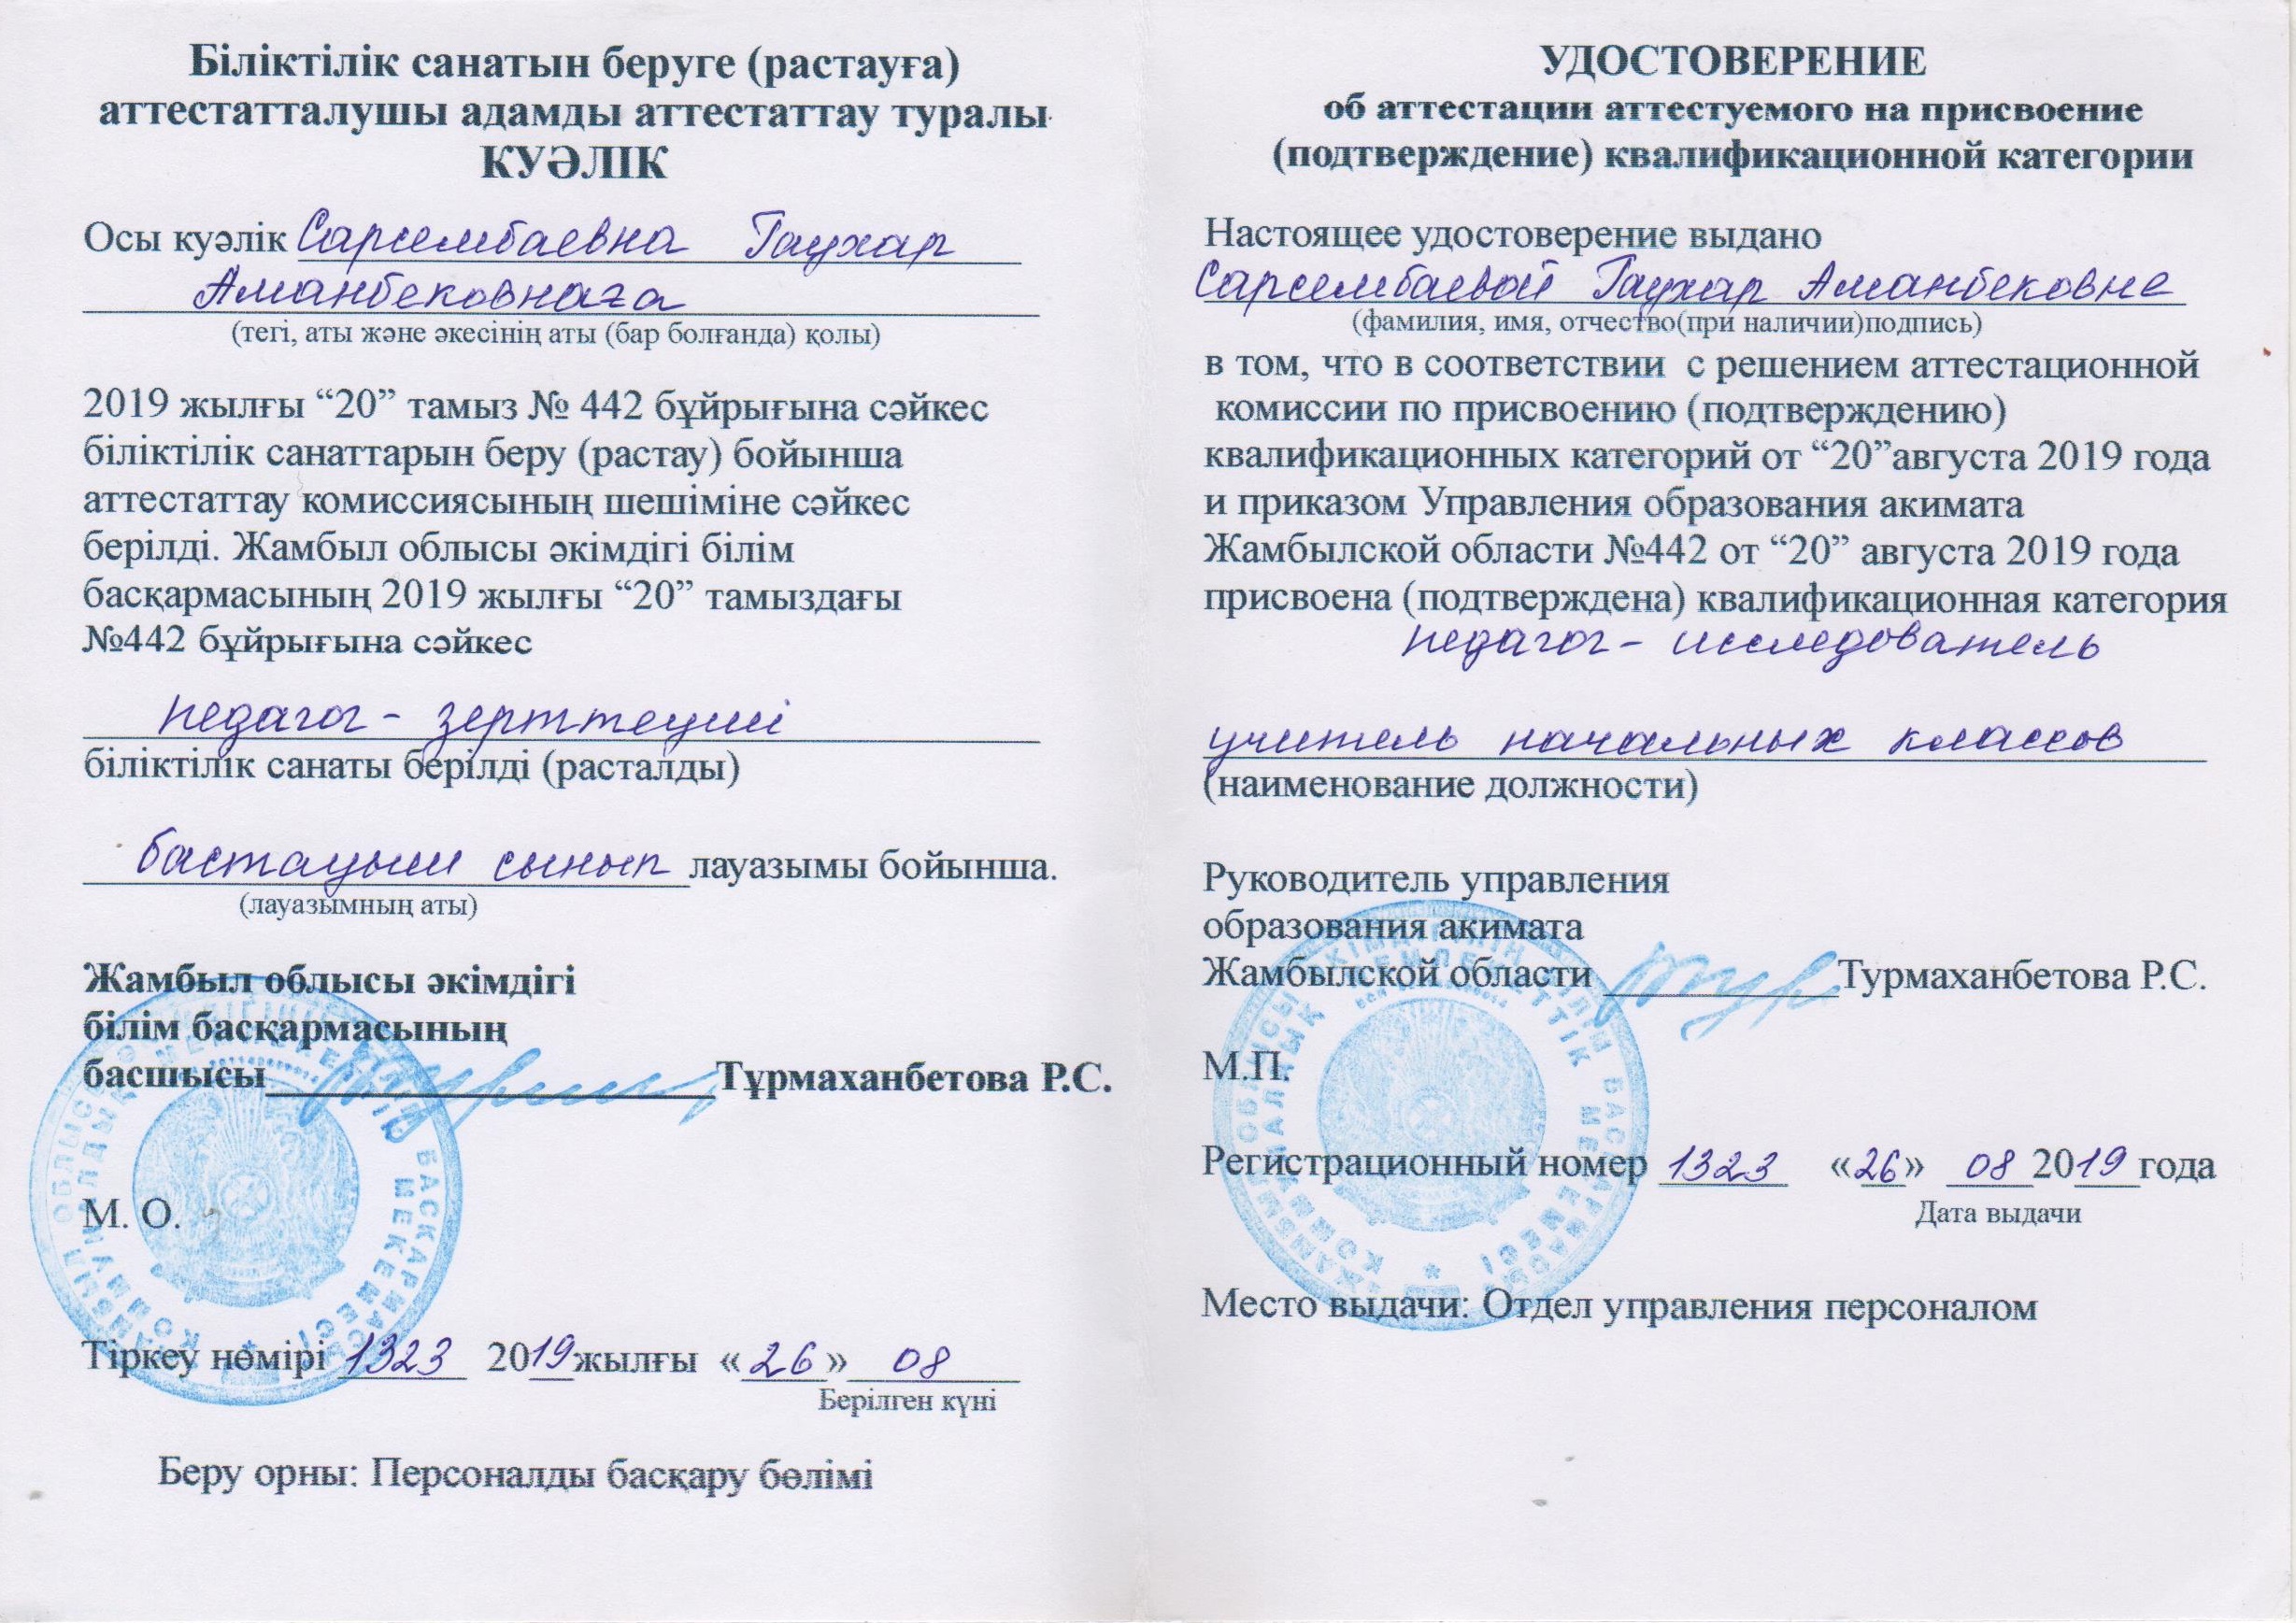 Біліктілік санатын беруге (растауға)
аттестатталушы адамды аттестаттау туралы
КУӘЛІК
Осы куәлік Сарсембаевна Гаухар
Аманбековнаға
(тегі, аты және әкесінің аты (бар болғанда) қолы)
2019 жылғы “20” тамыз № 442 бұйрығына сәйкес
біліктілік санаттарын беру (растау) бойынша
аттестаттау комиссиясының шешіміне сәйкес
берілді. Жамбыл облысы әкімдігі білім
басқармасының 2019 жылғы “20” тамыздағы
№442 бұйрығына сәйкес
педагог- зерттеуші
біліктілік санаты берілді (расталды)
бастауыш сынып лауазымы бойынша.
(лауазымның аты)
Жамбыл облысы әкімдігі
білім басқармасының
басшысы Тұрмаханбетова Р.С.
М. О.
Тіркеу нөмірі 1323 2019 жылғы «26» 08
Берілген күні
Беру орны: Персоналды басқару бөлімі
УДОСТОВЕРЕНИЕ
об аттестации аттестуемого на присвоение
(подтверждение) квалификационной категории
Настоящее удостоверение выдано
Сарсембаевой Гаухар Аманбековне
(фамилия, имя, отчество(при наличии)подпись)
в том, что в соответствии с решением аттестационной
комиссии по присвоению (подтверждению)
квалификационных категорий от “20”августа 2019 года
и приказом Управления образования акимата
Жамбылской области №442 от “20” августа 2019 года
присвоена (подтверждена) квалификационная категория
педагог- исследователь
учитель начальных классов
(наименование должности)
Руководитель управления
образования акимата
Жамбылской области Турмаханбетова Р.С.
М.П.
Регистрационный номер 1323 «26» 08 2019 года
Дата выдачи
Место выдачи: Отдел управления персоналом